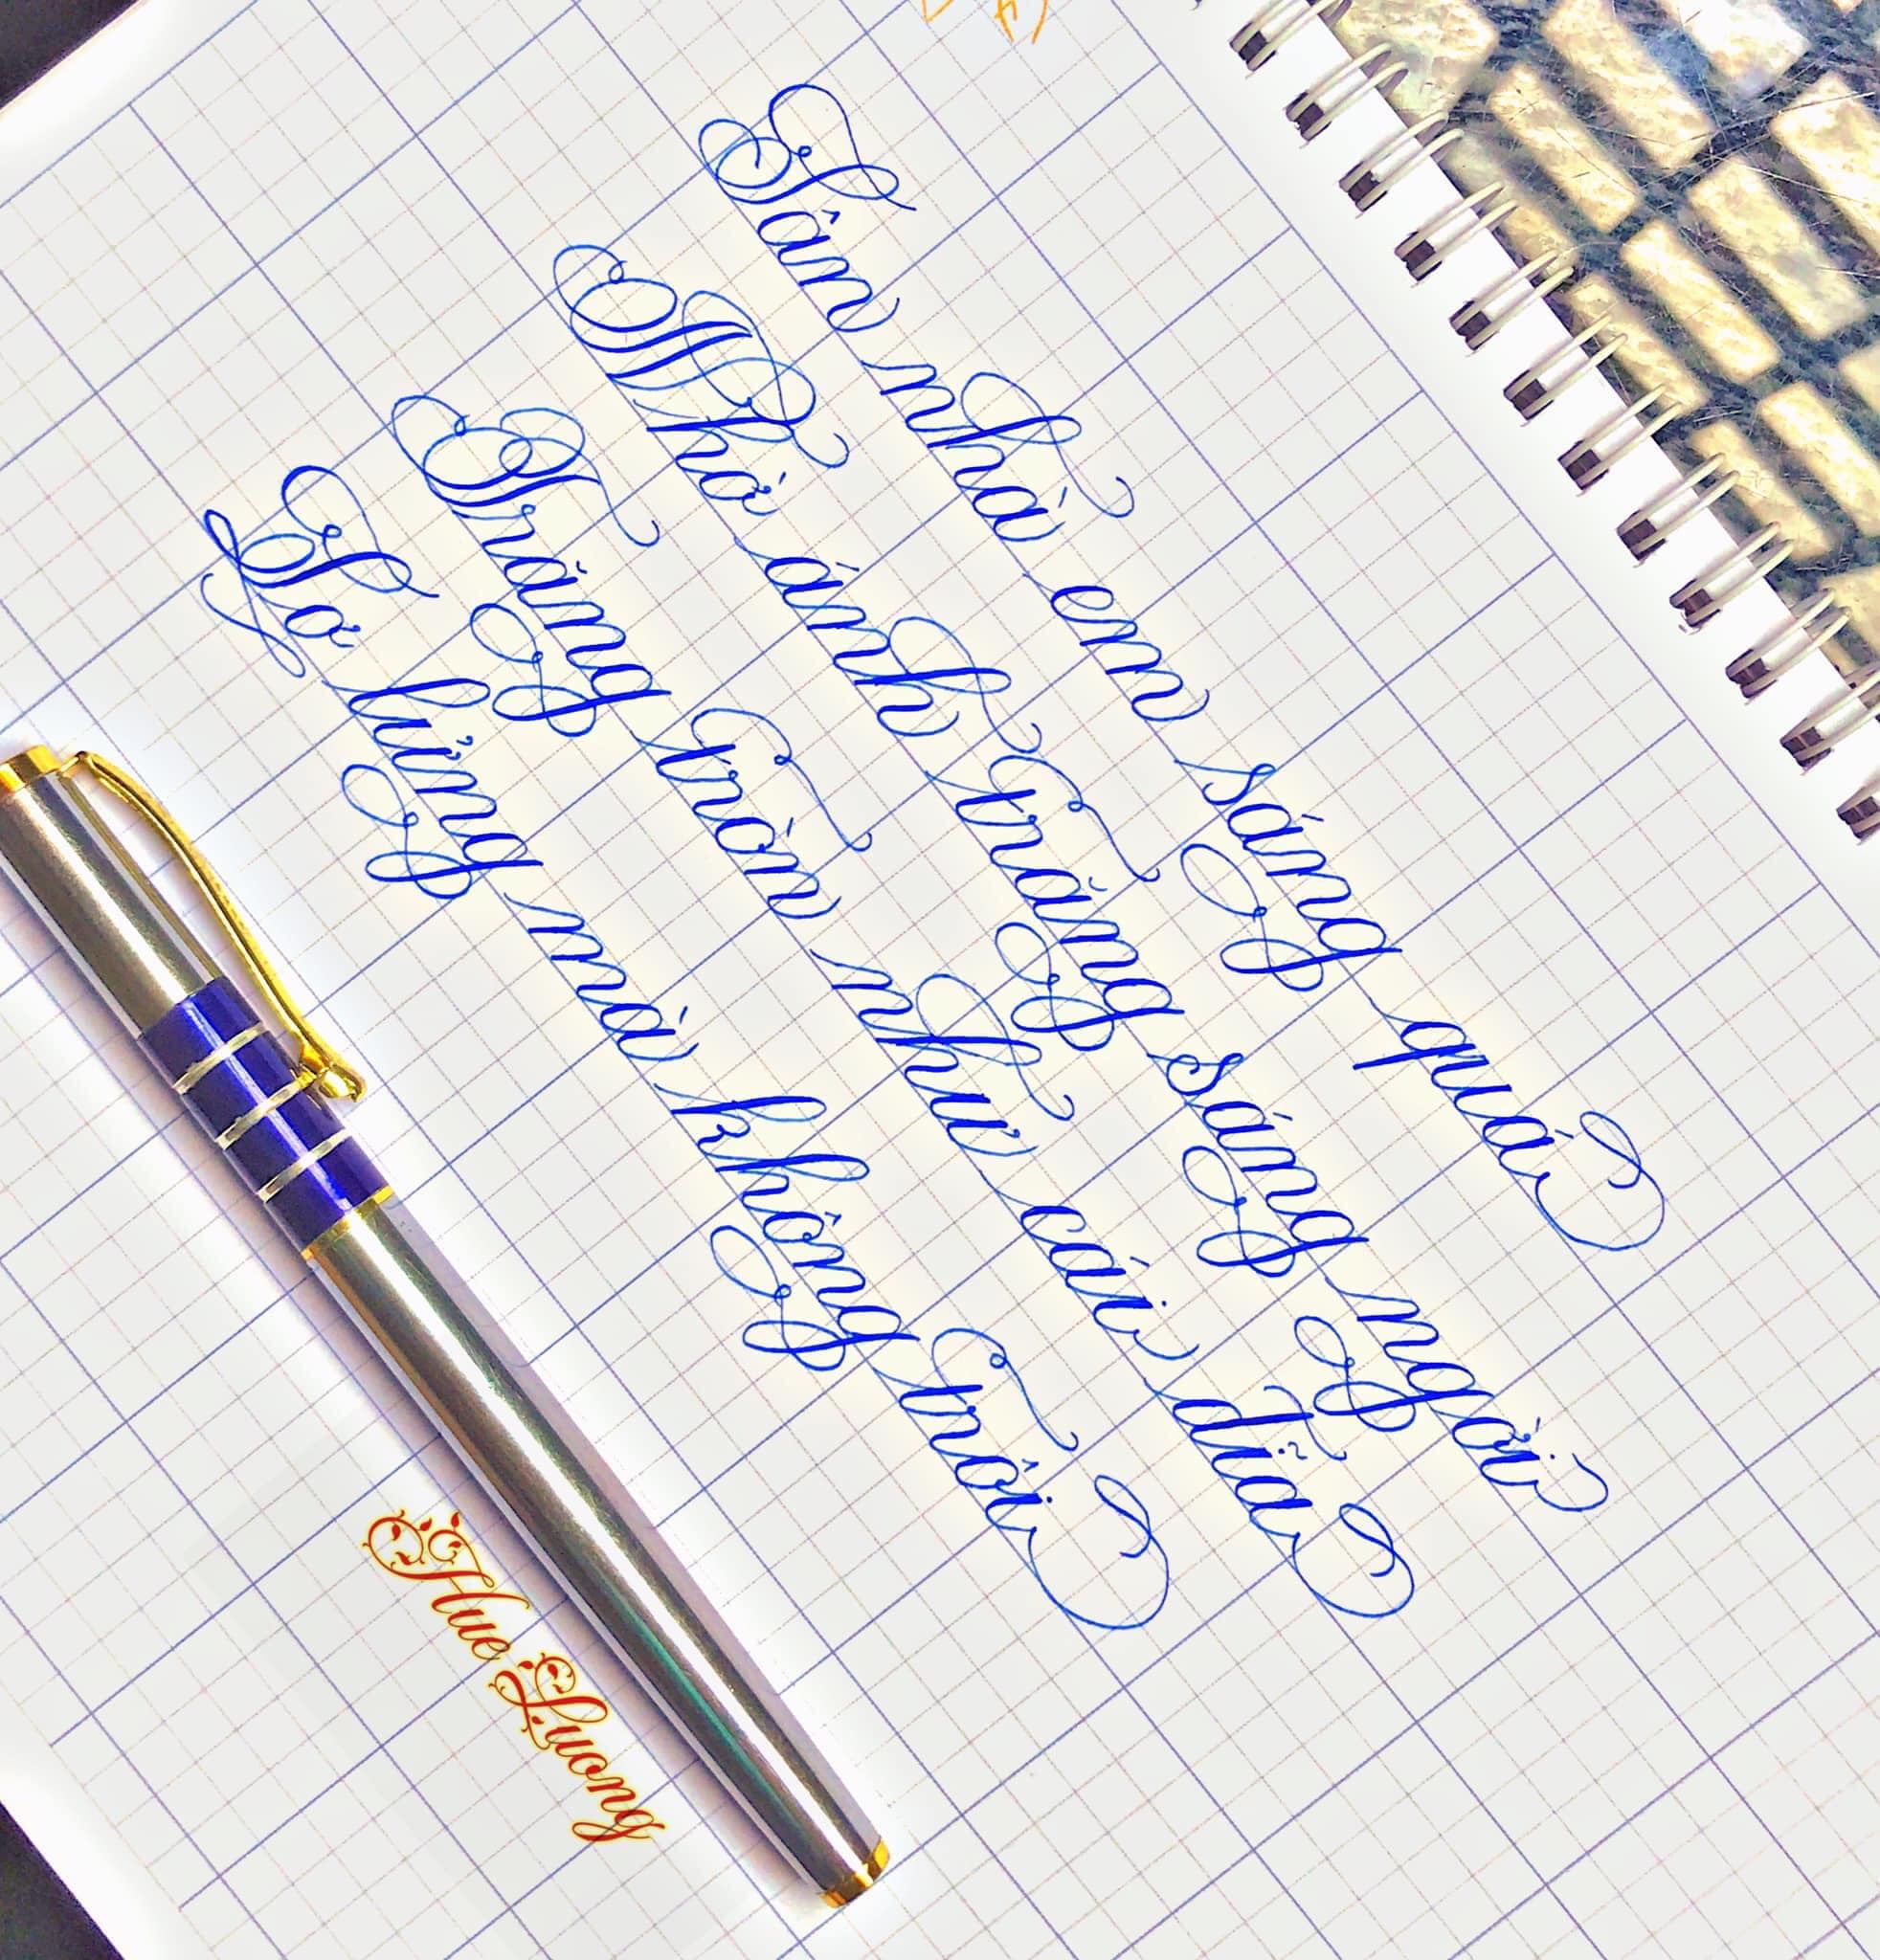 Sân nhà em sáng quá
Nhờ ánh trăng sáng ngời
Trăng tròn như cái đĩa
Lơ lửng mà không trôi
Hue Luong